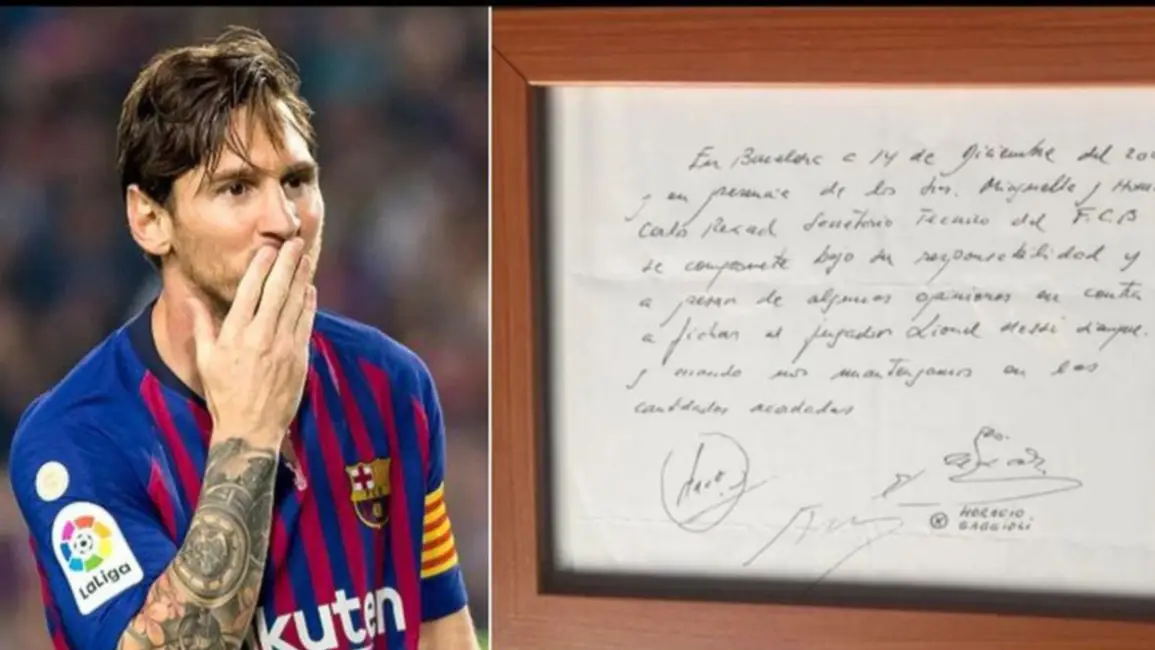 LaLiga
kuten
FCB
En Barcelona a 14 de Diciembre del 20
y en presencia de los Sres. Minguella y Hora
Carlos Rexach Secretario Tecnico del F.C.B
se compromete bajo su responsabilidad y
a pesar de algunas opiniones en contra
a fichar al jugador Lionel Messi siempre
y cuando nos mantengamos en las
cantidades acordadas
HORACIO
GAGGIOLI